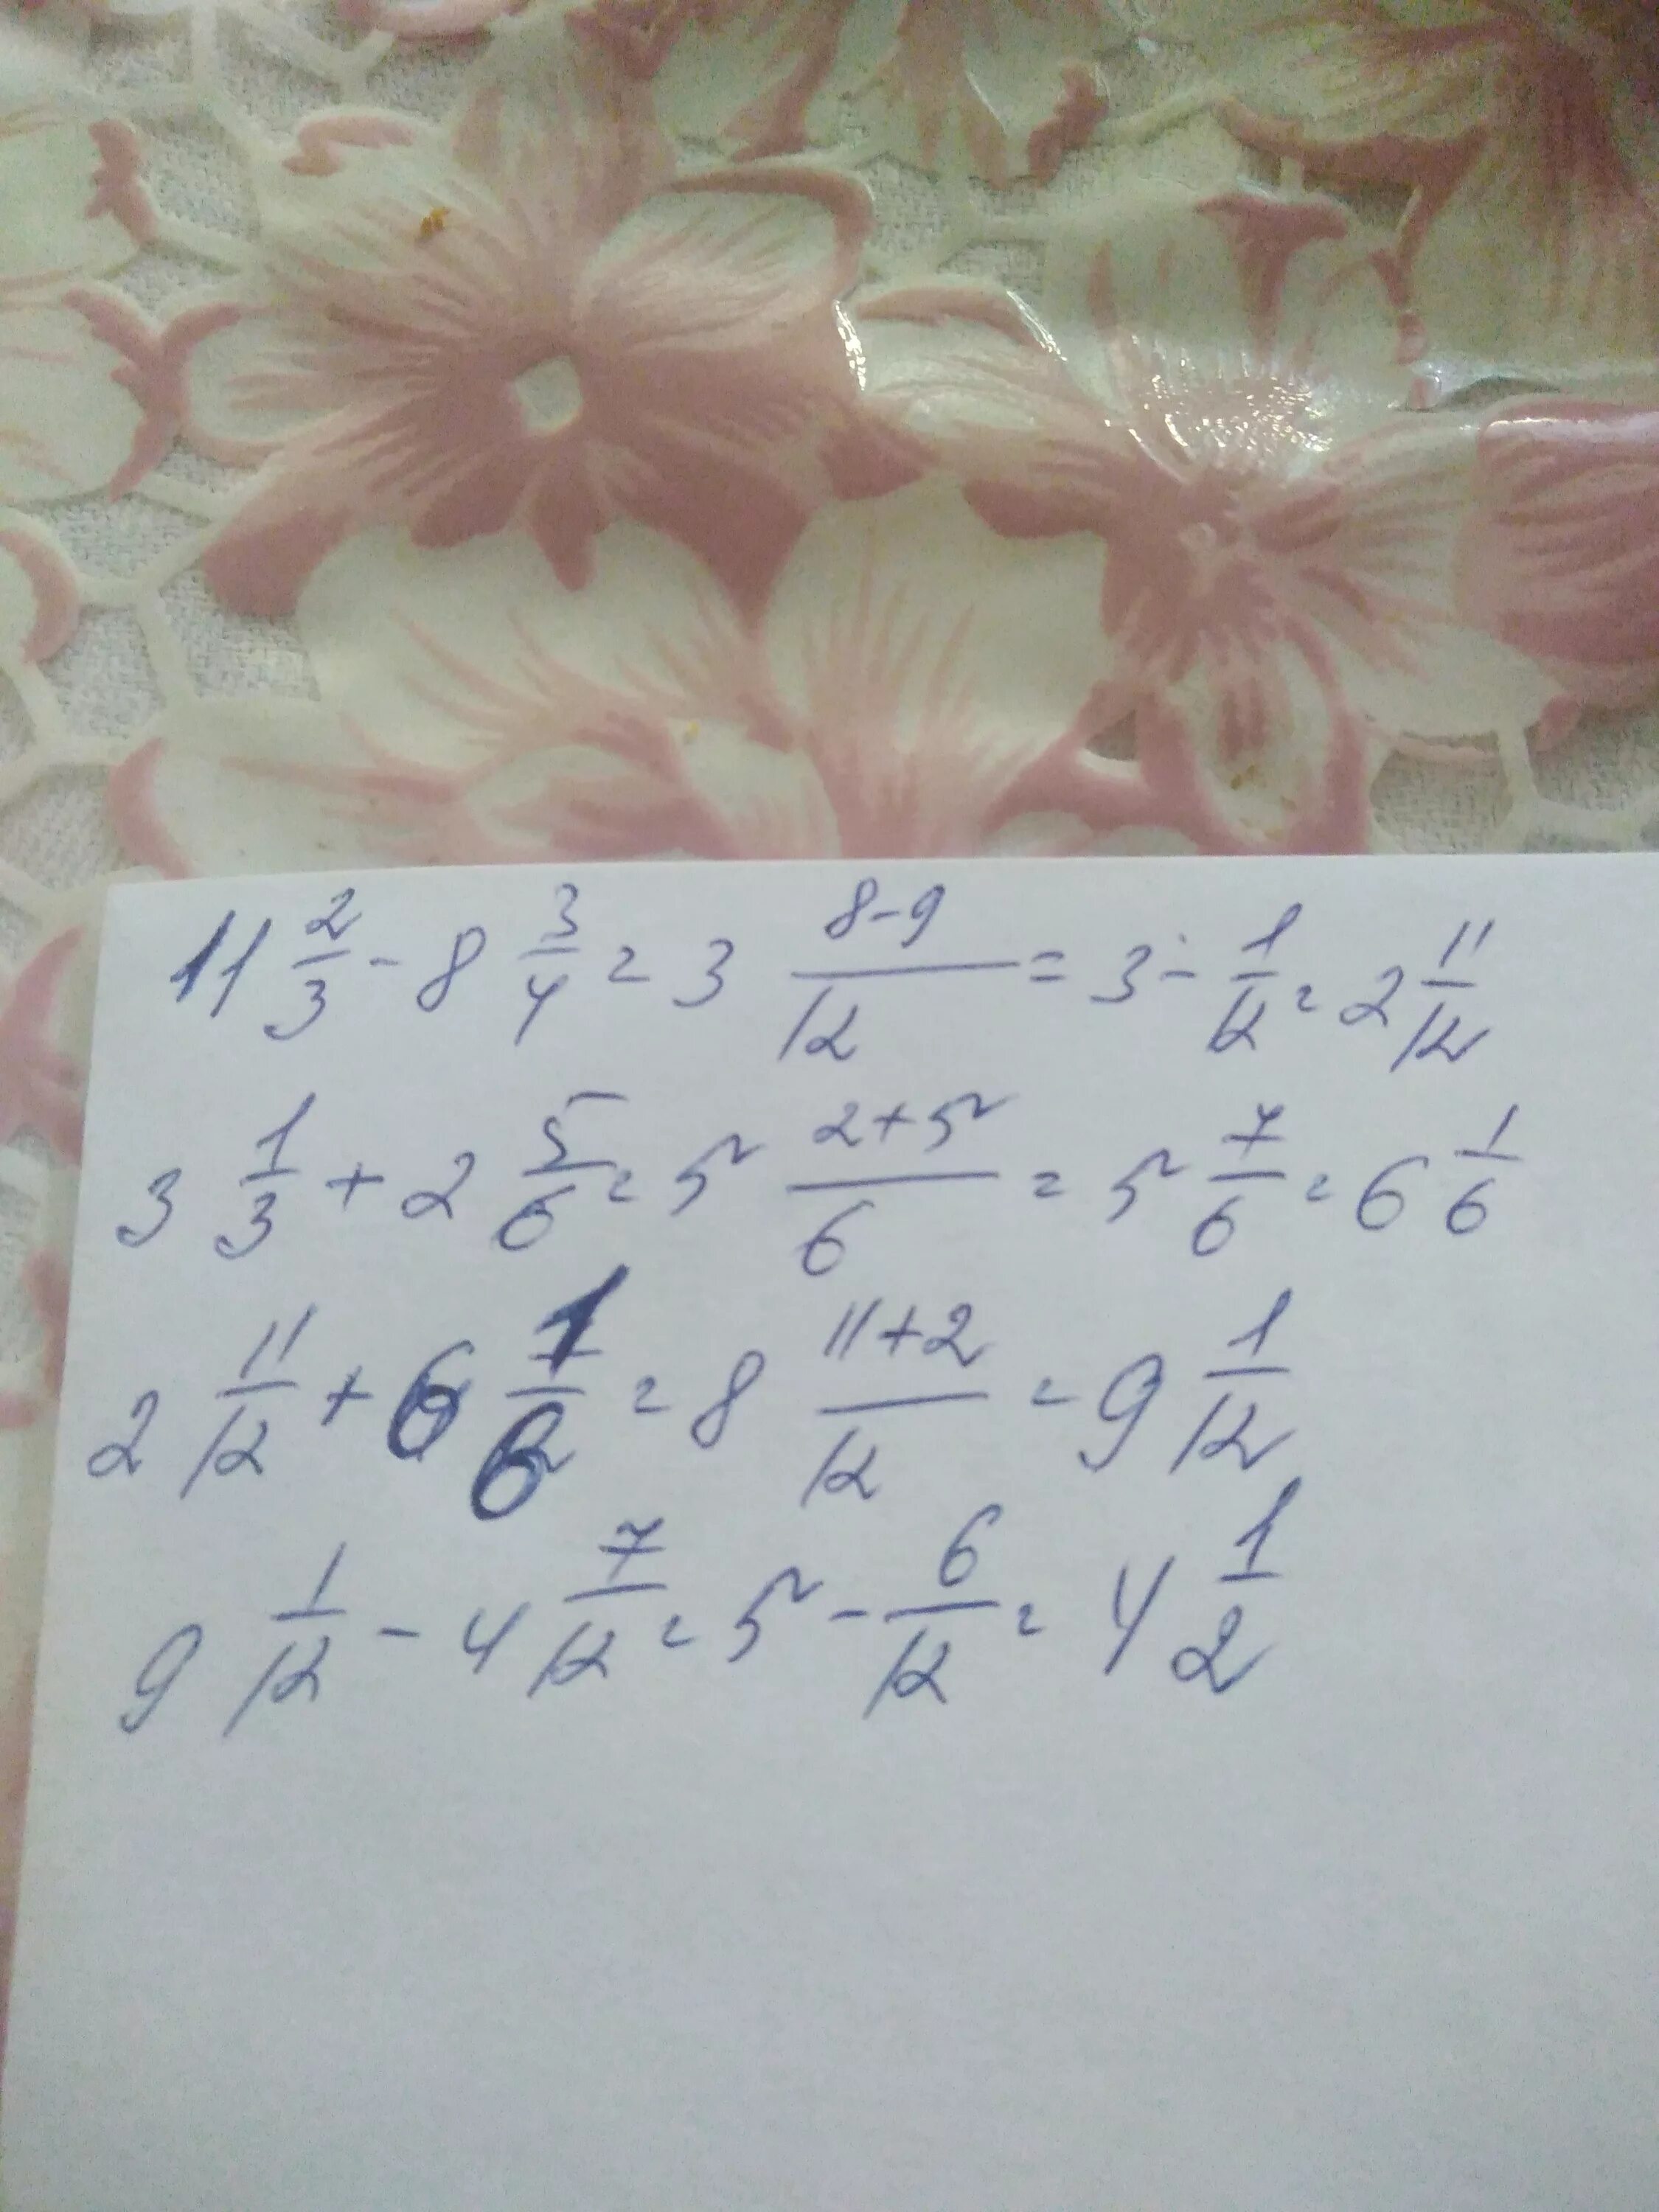 11 2/3 - 8 3/4 = 3 (8-9)/12 = 3 - 1/12 = 2 11/12
3 1/3 + 2 5/6 = 5 (2+5)/6 = 5 7/6 = 6 1/6
2 11/12 + 6 1/6 = 8 (11+2)/12 = 9 1/12
9 1/12 - 4 7/12 = 5 - 6/12 = 4 1/2